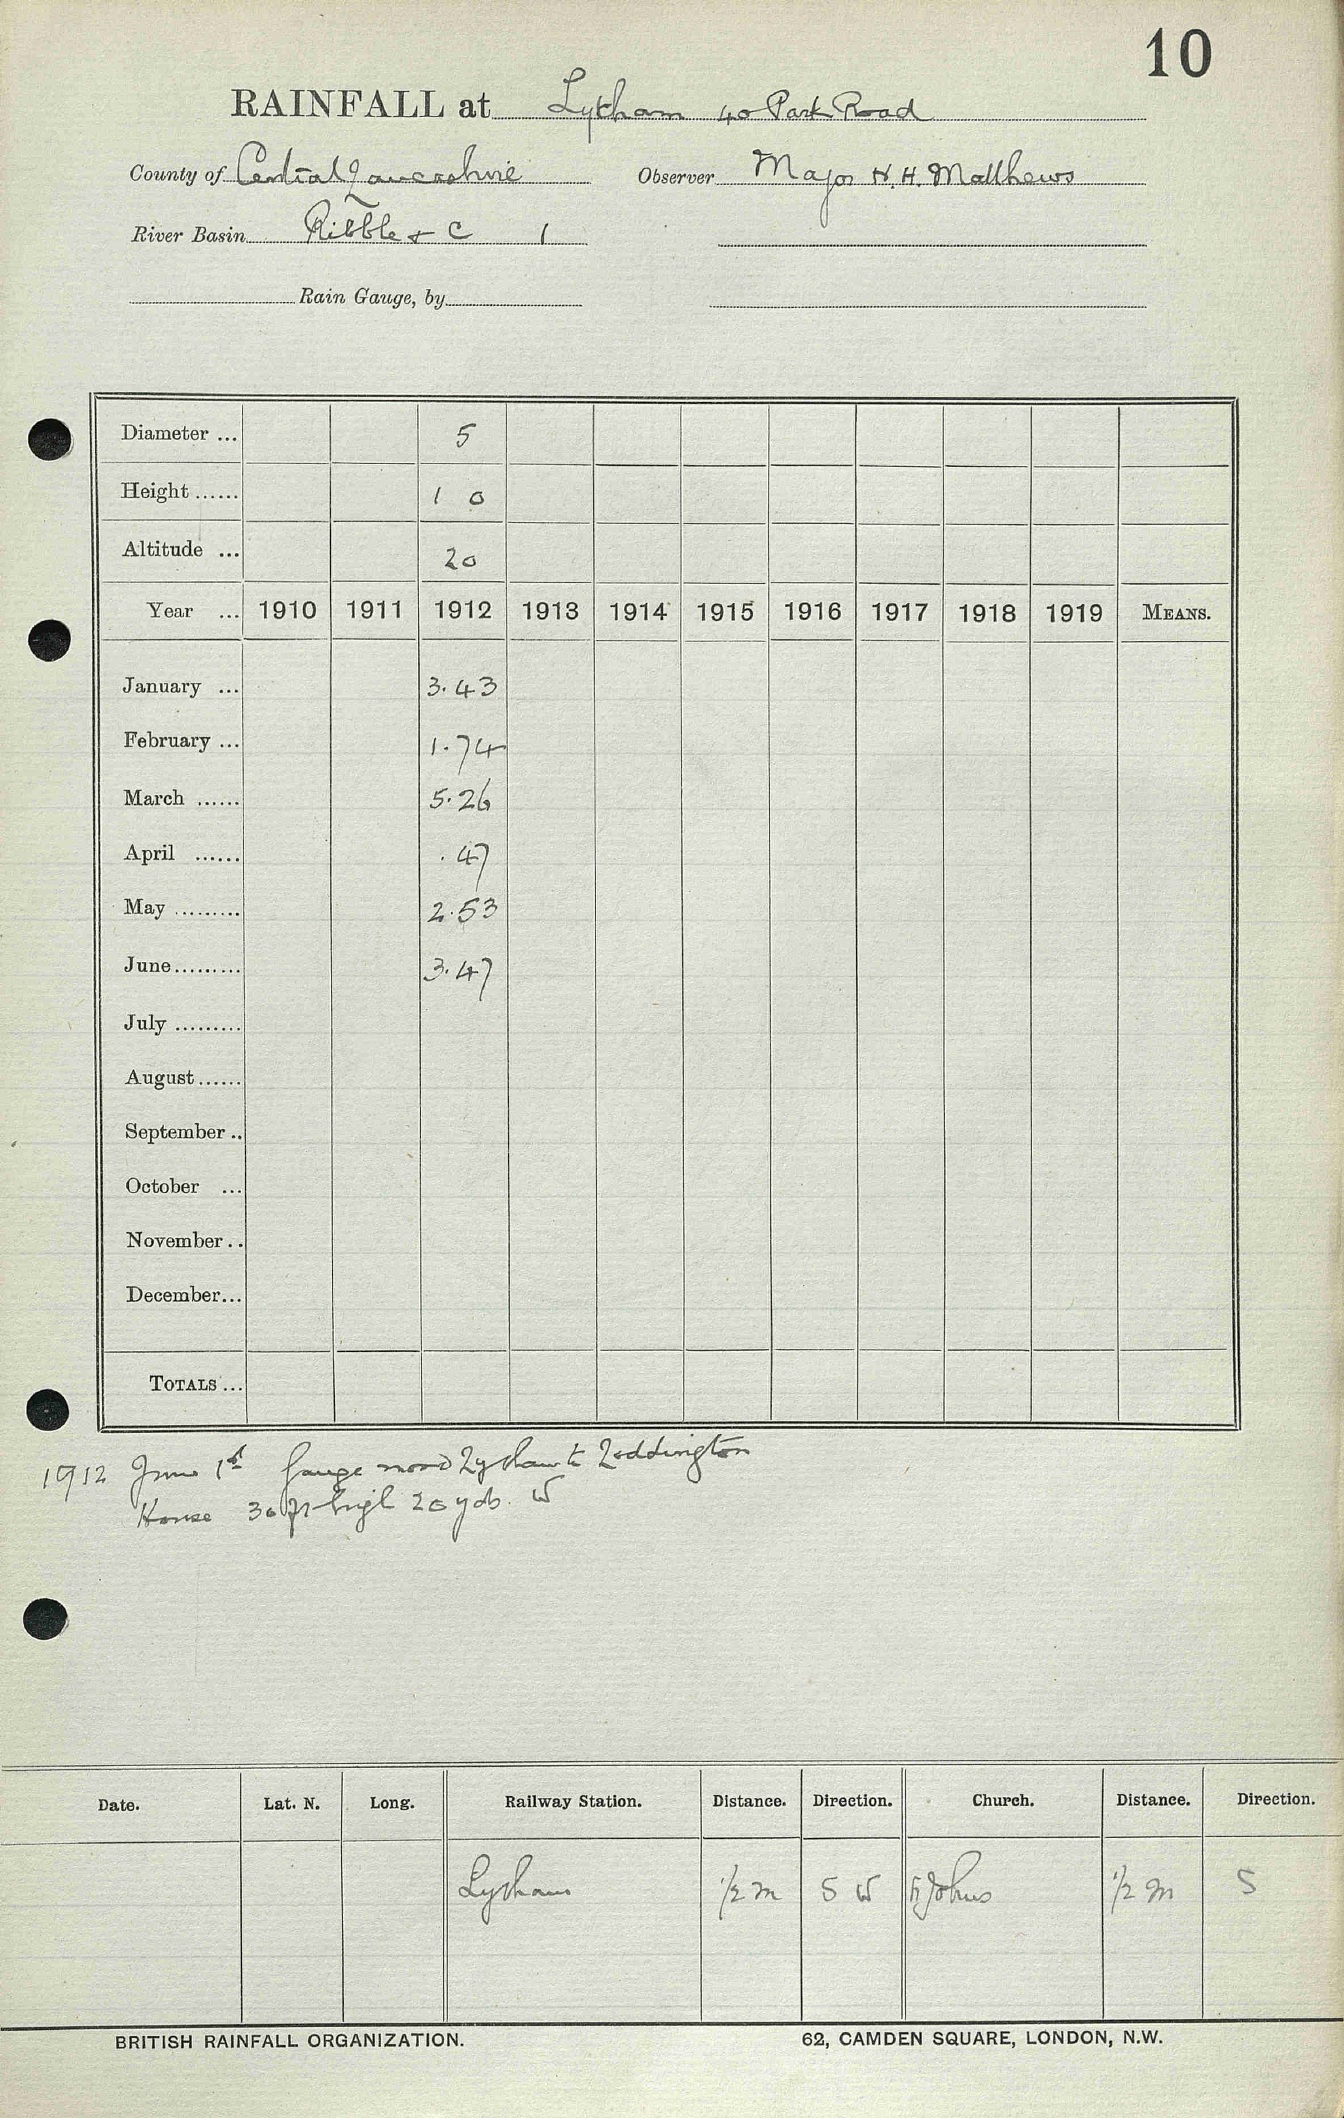 10
RAINFALL at Lytham 40 Park Road
County of Central Lancashire Observer Major H. H. Matthews
River Basin Ribble & C 1
Rain Gauge, by
Diameter ... 5
Height ...... 1 0
Altitude ... 20
Year ... 1910 1911 1912 1913 1914 1915 1916 1917 1918 1919 MEANS.
January ... 3.43
February ... 1.74
March ...... 5.26
April ...... .47
May ......... 2.53
June ......... 3.47
July .........
August ......
September ..
October ...
November ..
December ...
TOTALS ...
1912 June 1st Gauge Lytham to
House 30 ft high 20 yds. W
Date. Lat. N. Long. Railway Station. Distance. Direction. Church. Distance. Direction.
Lytham 1/2 m S W St Johns 1/2 m S
BRITISH RAINFALL ORGANIZATION. 62, CAMDEN SQUARE, LONDON, N.W.